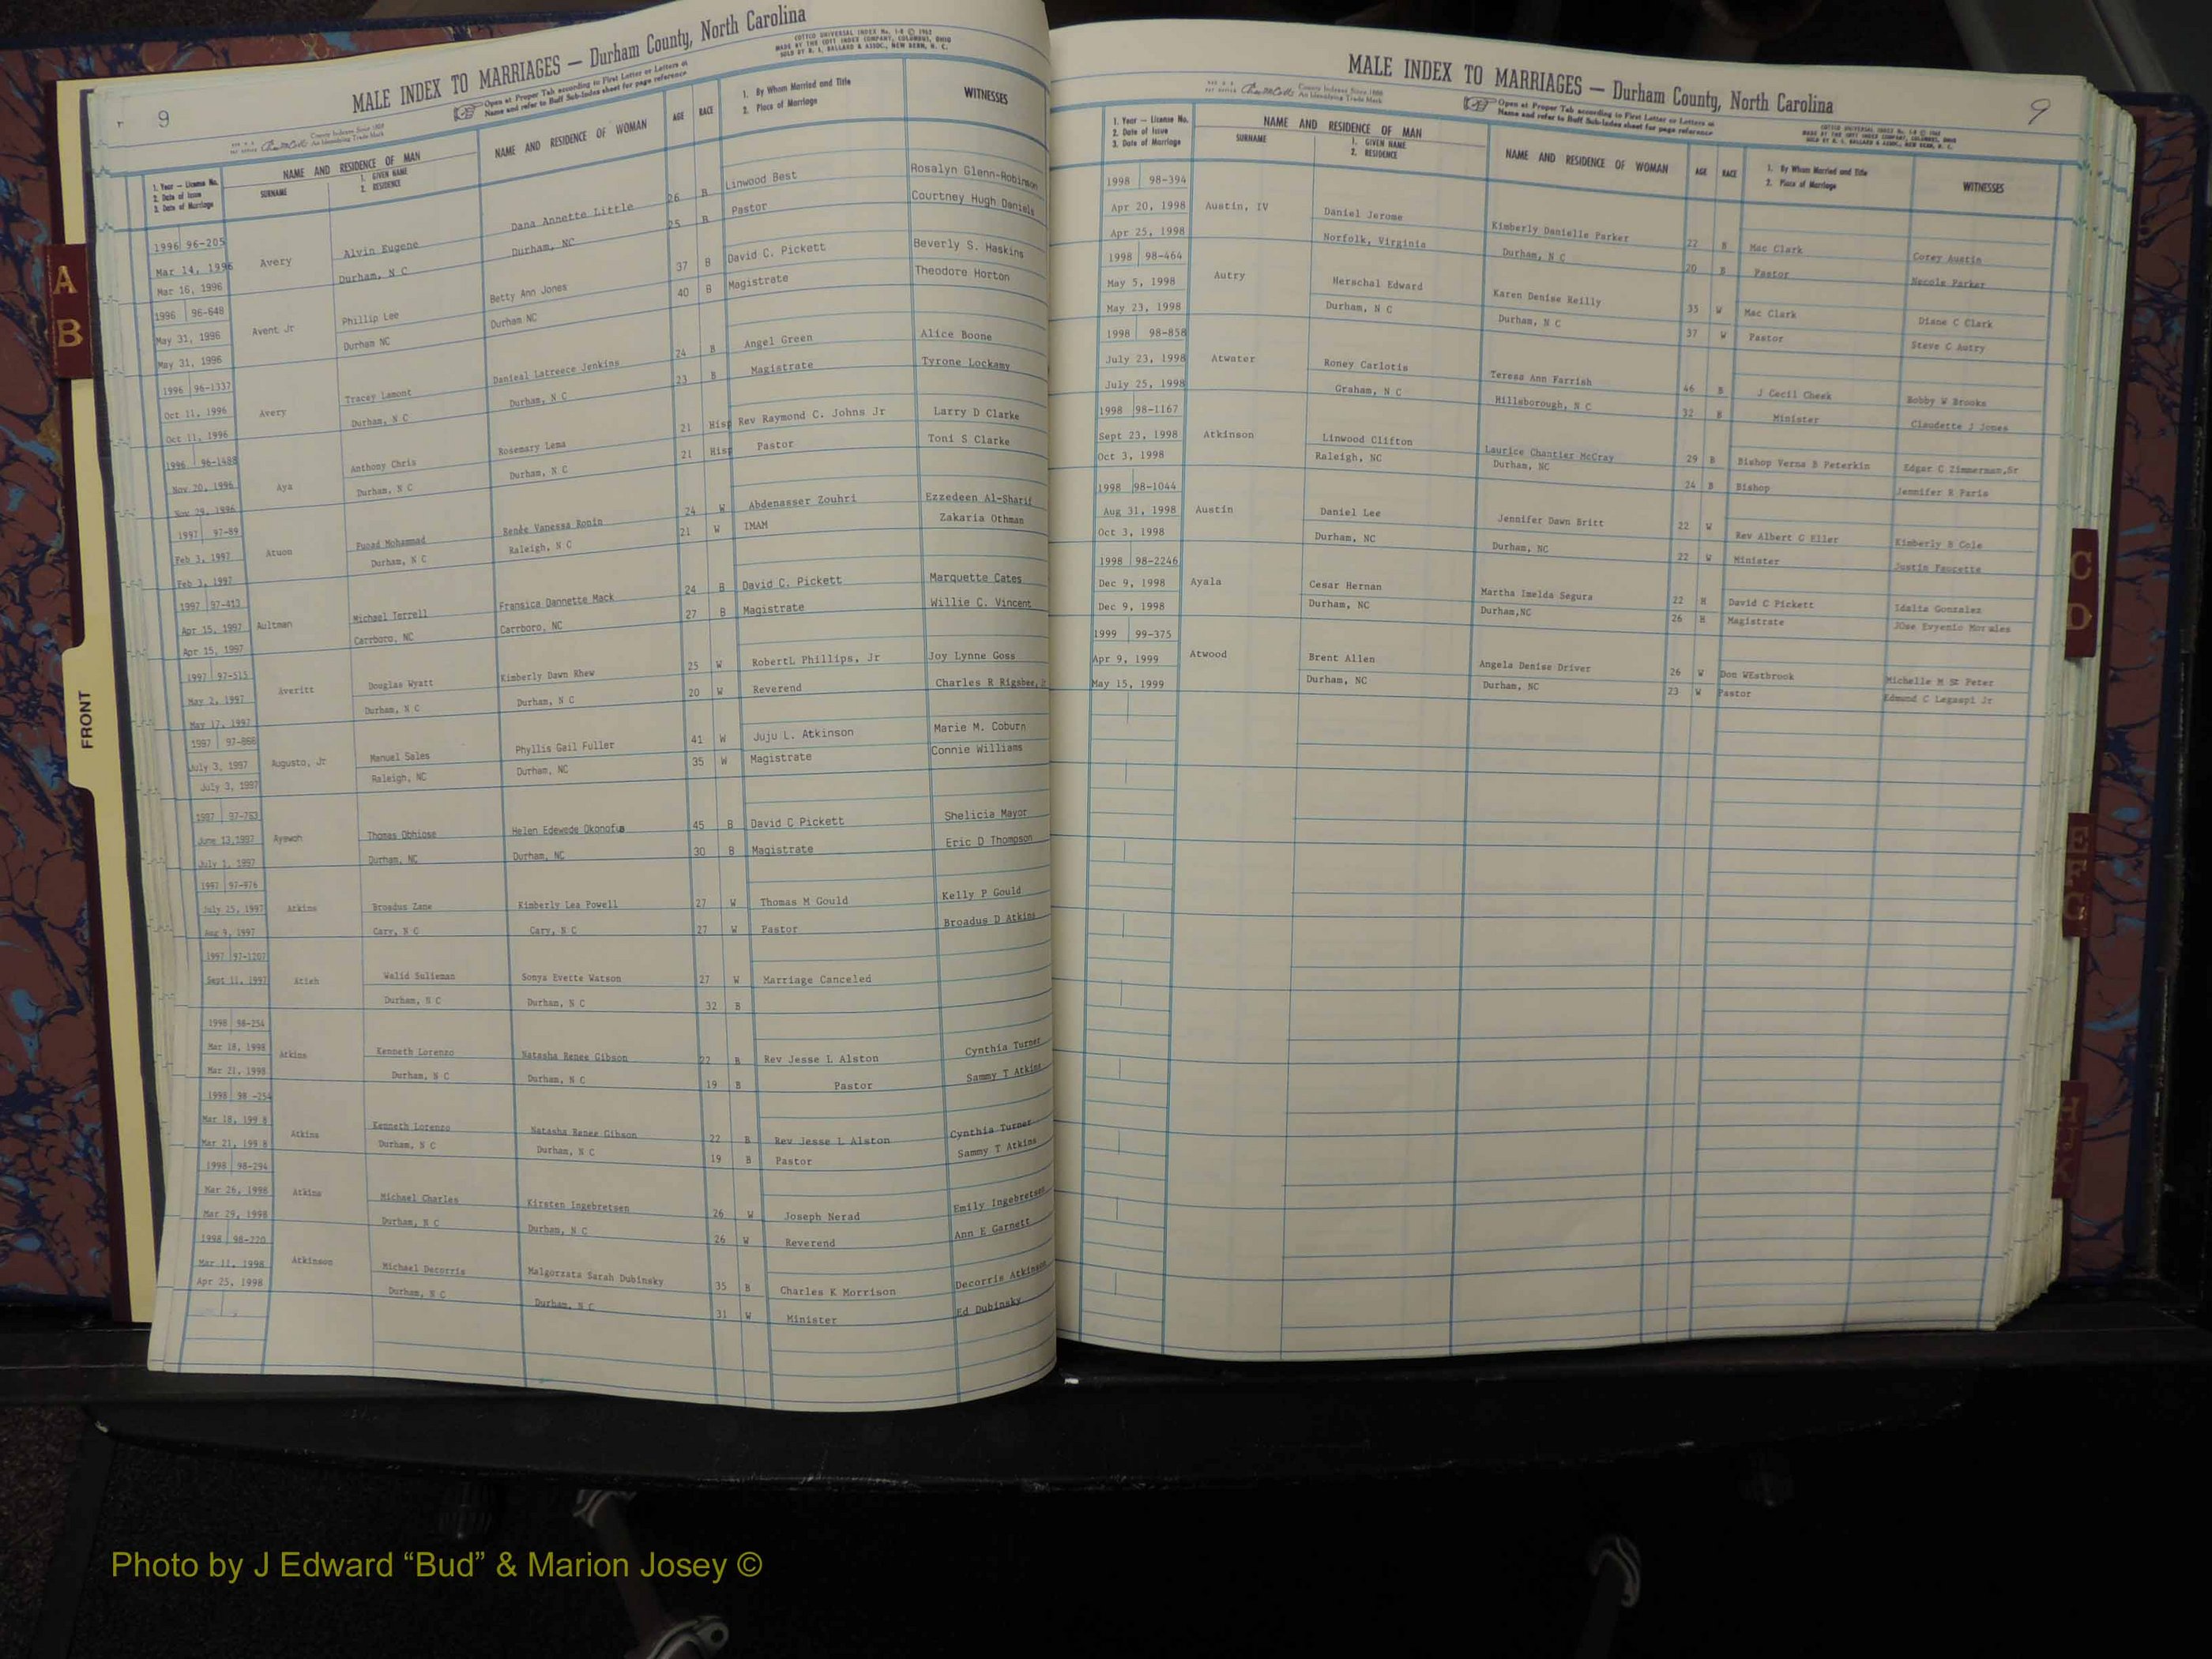 9
MALE INDEX TO MARRIAGES — Durham County, North Carolina
COTTCO UNIVERSAL INDEX No. 1-8 © 1962
MADE BY THE COTT INDEX COMPANY, COLUMBUS, OHIO
SOLD BY R. L. BALLARD & ASSOC., NEW BERN, N. C.
Open at Proper Tab according to First Letter or Letters of
Name and refer to Buff Sub-Index sheet for page reference
County Indexes Since 1888
An Identifying Trade Mark
1. Year — License No.
2. Date of Issue
3. Date of Marriage
NAME AND RESIDENCE OF MAN
SURNAME
1. GIVEN NAME
2. RESIDENCE
NAME AND RESIDENCE OF WOMAN
AGE
RACE
1. By Whom Married and Title
2. Place of Marriage
WITNESSES
1996 96-205 Dana Annette Little 26 B Linwood Best Rosalyn Glenn-Robinson
Mar 14, 1996 Avery Alvin Eugene Durham, NC 25 B Pastor Courtney Hugh Daniels
Mar 16, 1996 Durham, N C
1996 96-648 Betty Ann Jones 37 B David C. Pickett Beverly S. Haskins
May 31, 1996 Avent Jr Phillip Lee Durham NC 40 B Magistrate Theodore Horton
May 31, 1996 Durham NC
1996 96-1337 Danieal Latreece Jenkins 24 B Angel Green Alice Boone
Oct 11, 1996 Avery Tracey Lamont Durham, N C 23 B Magistrate Tyrone Lockamy
Oct 11, 1996 Durham, N C
1996 96-1488 Rosemary Lema 21 Hisp Rev Raymond C. Johns Jr Larry D Clarke
Nov 20, 1996 Aya Anthony Chris Durham, N C 21 Hisp Pastor Toni S Clarke
Nov 29, 1996 Durham, N C
1997 97-89 Renee Vanessa Ronin 24 W Abdenasser Zouhri Ezzedeen Al-Sharif
Feb 3, 1997 Atuon Fuoad Mohammad Raleigh, N C 21 W IMAM Zakaria Othman
Feb 3, 1997 Durham, N C
1997 97-413 Fransica Dannette Mack 24 B David C. Pickett Marquette Cates
Apr 15, 1997 Aultman Michael Terrell Carrboro, NC 27 B Magistrate Willie C. Vincent
Apr 15, 1997 Carrboro, NC
1997 97-515 Kimberly Dawn Rhew 25 W RobertL Phillips, Jr Joy Lynne Goss
May 2, 1997 Averitt Douglas Wyatt Durham, N C 20 W Reverend Charles R Rigsbee,
May 17, 1997 Durham, N C
1997 97-866 Phyllis Gail Fuller 41 W Juju L. Atkinson Marie M. Coburn
July 3, 1997 Augusto, Jr Manuel Sales Durham, NC 35 W Magistrate Connie Williams
July 3, 1997 Raleigh, NC
1997 97-763 Helen Edewede Okonofua 45 B David C Pickett Shelicia Mayor
June 13,1997 Ayewoh Thomas Obhiose Durham, NC 30 B Magistrate Eric D Thompson
July 1, 1997 Durham, NC
1997 97-976
July 25, 1997 Atkins Broadus Zane Kimberly Lea Powell 27 W Thomas M Gould Kelly P Gould
Aug 9, 1997 Cary, N C Cary, N C 27 W Pastor Broadus D Atkins
1997 97-1207
Sept 11, 1997 Atieh Walid Sulieman Sonya Evette Watson 27 W Marriage Canceled
Durham, N C Durham, N C 32 B
1998 98-254
Mar 18, 1998 Atkins Kenneth Lorenzo Natasha Renee Gibson 22 B Rev Jesse L Alston Cynthia Turner
Mar 21, 1998 Durham, N C Durham, N C 19 B Pastor Sammy T Atkins
1998 98 -254
Mar 18, 199 8 Atkins Kenneth Lorenzo Natasha Renee Gibson 22 B Rev Jesse L Alston Cynthia Turner
Mar 21, 199 8 Durham, N C Durham, N C 19 B Pastor Sammy T Atkins
1998 98-294
Mar 26, 1998 Atkins Michael Charles Kirsten Ingebretsen 26 W Joseph Nerad Emily Ingebretsen
Mar 29, 1998 Durham, N C Durham, N C 26 W Reverend Ann E Garnett
1998 98-220
Mar 11, 1998 Atkinson Michael Decorris Malgorzata Sarah Dubinsky 35 B Charles K Morrison Decorris Atkinson
Apr 25, 1998 Durham, N C Durham, N C 31 W Minister Ed Dubinsky
MALE INDEX TO MARRIAGES — Durham County, North Carolina
9
County Indexes Since 1888
An Identifying Trade Mark
Open at Proper Tab according to First Letter or Letters of
Name and refer to Buff Sub-Index sheet for page reference
COTTCO UNIVERSAL INDEX No. 1-8 © 1962
MADE BY THE COTT INDEX COMPANY, COLUMBUS, OHIO
SOLD BY R. L. BALLARD & ASSOC., NEW BERN, N. C.
1. Year — License No.
2. Date of Issue
3. Date of Marriage
NAME AND RESIDENCE OF MAN
SURNAME
1. GIVEN NAME
2. RESIDENCE
NAME AND RESIDENCE OF WOMAN
AGE
RACE
1. By Whom Married and Title
2. Place of Marriage
WITNESSES
1998 98-394
Apr 20, 1998 Austin, IV Daniel Jerome Kimberly Danielle Parker 22 B Mac Clark Corey Austin
Apr 25, 1998 Norfolk, Virginia Durham, N C 20 B Pastor Necole Parker
1998 98-464
May 5, 1998 Autry Herschal Edward Karen Denise Reilly 35 W Mac Clark Diane C Clark
May 23, 1998 Durham, N C Durham, N C 37 W Pastor Steve C Autry
1998 98-858
July 23, 1998 Atwater Roney Carlotis Teresa Ann Farrish 46 B J Cecil Cheek Bobby W Brooks
July 25, 1998 Graham, N C Hillsborough, N C 32 B Minister Claudette J Jones
1998 98-1167
Sept 23, 1998 Atkinson Linwood Clifton Laurice Chantier McCray 29 B Bishop Verna B Peterkin Edgar C Zimmerman,Sr
Oct 3, 1998 Raleigh, NC Durham, NC 24 B Bishop Jennifer R Paris
1998 98-1044
Aug 31, 1998 Austin Daniel Lee Jennifer Dawn Britt 22 W Rev Albert G Eller Kimberly B Cole
Oct 3, 1998 Durham, NC Durham, NC 22 W Minister Justin Faucette
1998 98-2246
Dec 9, 1998 Ayala Cesar Hernan Martha Imelda Segura 22 H David C Pickett Idalia Gonzalez
Dec 9, 1998 Durham, NC Durham,NC 26 H Magistrate JOse Evyenio Morales
1999 99-375
Apr 9, 1999 Atwood Brent Allen Angela Denise Driver 26 W Don WEstbrook Michelle M St Peter
May 15, 1999 Durham, NC Durham, NC 23 W Pastor Edmund C Legaspi Jr
A
B
FRONT
C
D
E
F
G
H
Photo by J Edward “Bud” & Marion Josey ©